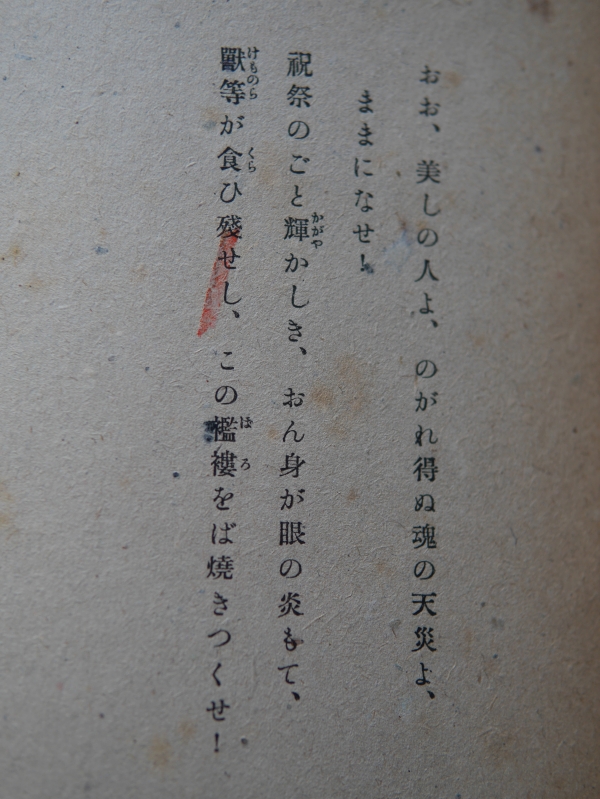 おお、美しの人よ、のがれ得ぬ魂の天災よ、
ままになせ!
祝祭のごと輝かしき、おん身が眼の炎もて、
獸等が食ひ殘せし、この襤褸をば燒きつくせ!
かがや
けものら
くら
ぼろ